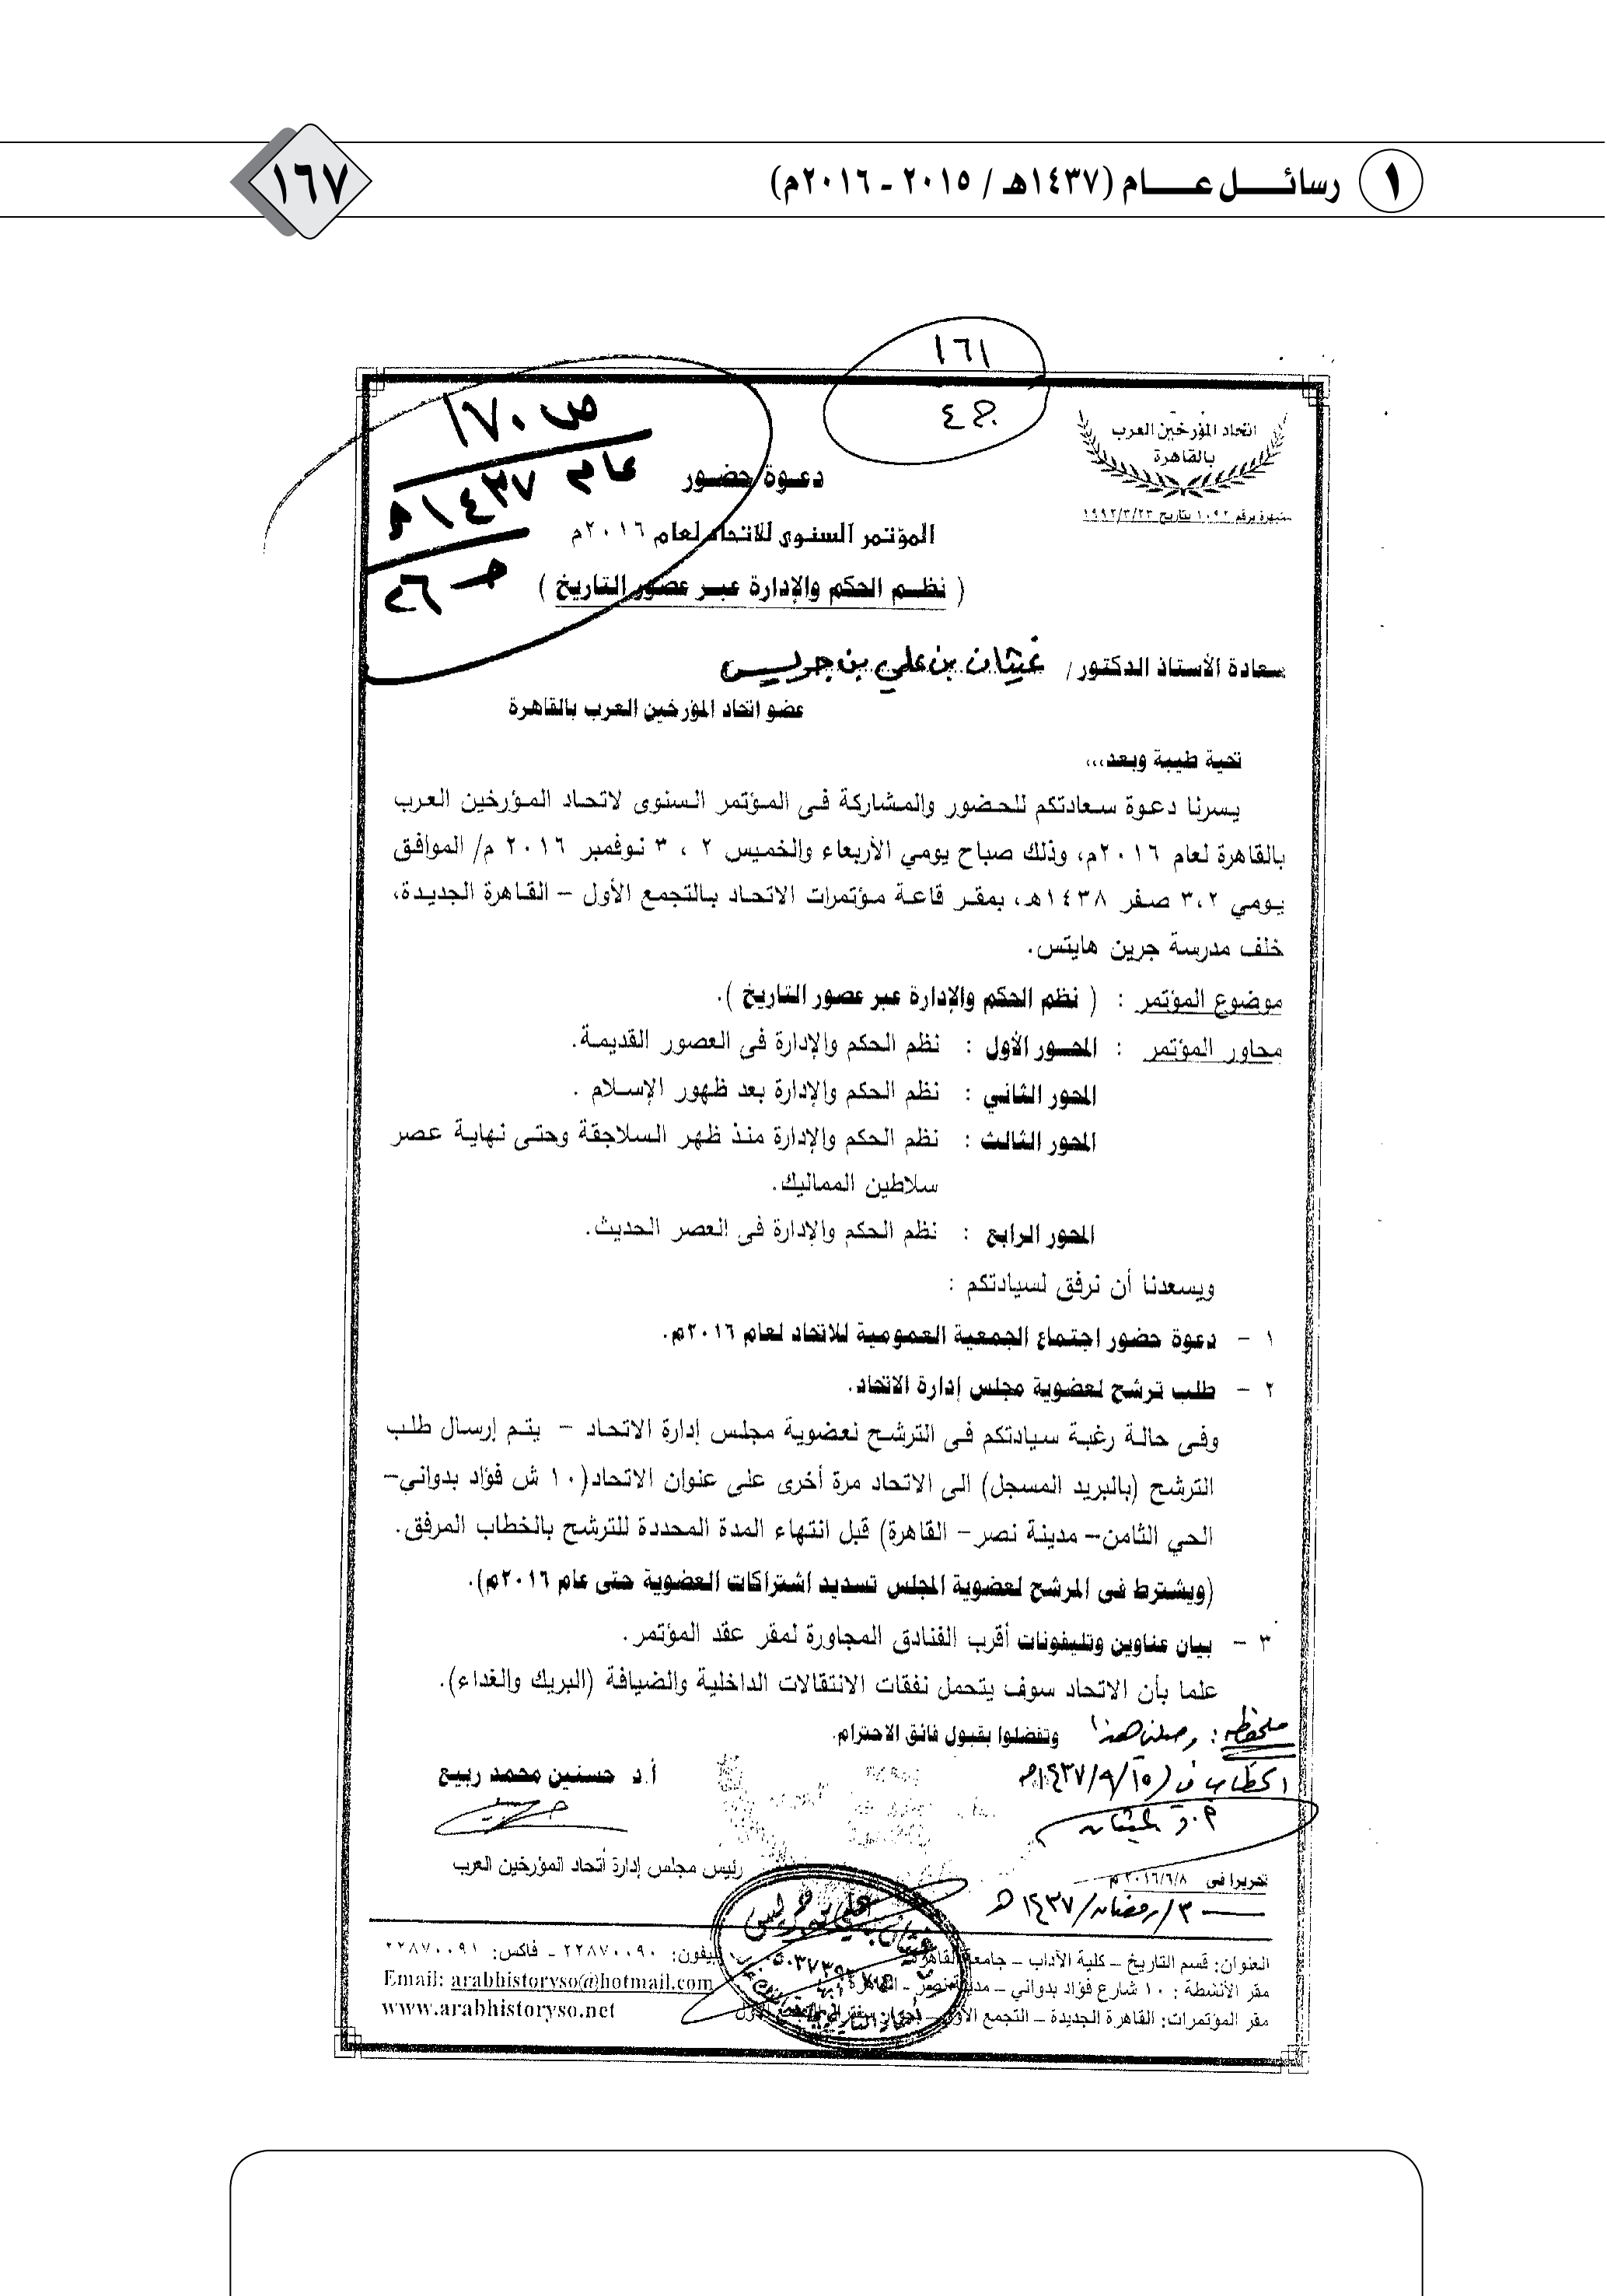 ١ رسائـــل عـــــام (١٤٣٧هـ / ٢٠١٥ - ٢٠١٦م)
١٦٧
١٦١
ص ١٧٠
عام ١٤٣٧هـ
اتحاد المؤرخين العرب
بالقاهرة
مشهرة برقم ١٠٩٢ بتاريخ ١٩٩٢/٣/٢٣
دعوة حضور
المؤتمر السنوى للاتحاد لعام ٢٠١٦م
( نظم الحكم والإدارة عبر عصور التاريخ )
سعادة الأستاذ الدكتور/ غيثان بن علي بن جريس
عضو اتحاد المؤرخين العرب بالقاهرة
تحية طيبة وبعد،،،
يسرنا دعوة سعادتكم للحضور والمشاركة فى المؤتمر السنوى لاتحاد المؤرخين العرب
بالقاهرة لعام ٢٠١٦م، وذلك صباح يومي الأربعاء والخميس ٢ ، ٣ نوفمبر ٢٠١٦ م/ الموافق
يومي ٣،٢ صفر ١٤٣٨هـ، بمقر قاعة مؤتمرات الاتحاد بالتجمع الأول – القاهرة الجديدة،
خلف مدرسة جرين هايتس.
موضوع المؤتمر : ( نظم الحكم والإدارة عبر عصور التاريخ ).
محاور المؤتمر : المحور الأول : نظم الحكم والإدارة فى العصور القديمة.
المحور الثاني : نظم الحكم والإدارة بعد ظهور الإسلام .
المحور الثالث : نظم الحكم والإدارة منذ ظهر السلاجقة وحتى نهاية عصر
سلاطين المماليك.
المحور الرابع : نظم الحكم والإدارة فى العصر الحديث.
ويسعدنا أن نرفق لسيادتكم :
١ – دعوة حضور اجتماع الجمعية العمومية للاتحاد لعام ٢٠١٦م.
٢ – طلب ترشح لعضوية مجلس إدارة الاتحاد.
وفى حالة رغبة سيادتكم فى الترشح لعضوية مجلس إدارة الاتحاد – يتم إرسال طلب
الترشح (بالبريد المسجل) الى الاتحاد مرة أخرى على عنوان الاتحاد(١٠ ش فؤاد بدواني–
الحي الثامن– مدينة نصر– القاهرة) قبل انتهاء المدة المحددة للترشح بالخطاب المرفق.
(ويشترط فى المرشح لعضوية المجلس تسديد اشتراكات العضوية حتى عام ٢٠١٦م).
٣ – بيان عناوين وتليفونات أقرب الفنادق المجاورة لمقر عقد المؤتمر.
علما بأن الاتحاد سوف يتحمل نفقات الانتقالات الداخلية والضيافة (البريك والغداء).
وتفضلوا بقبول فائق الاحترام.
ملحوظة: وصلني هذا
الخطاب في ١٤٣٧/٩/١٥هـ
أ.د حسنين محمد ربيع
رئيس مجلس إدارة أتحاد المؤرخين العرب
تحريرا فى ٢٠١٦/٦/٨م
٣/رمضان/١٤٣٧هـ
العنوان: قسم التاريخ – كلية الآداب – جامعة القاهرة تليفون: ٢٢٨٧٠٠٩٠ - فاكس: ٢٢٨٧٠٠٩١
مقر الأنشطة : ١٠ شارع فؤاد بدواني – مدينة نصر - القاهرة Email: arabhistoryso@hotmail.com
مقر المؤتمرات: القاهرة الجديدة – التجمع الأول – www.arabhistoryso.net